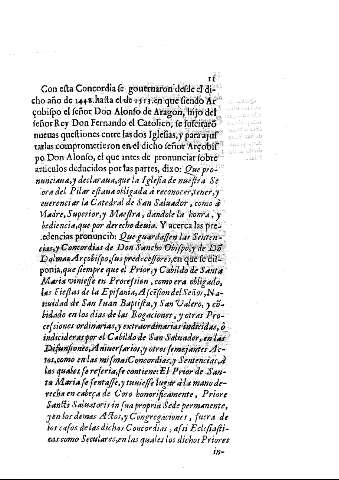 11
Con esta Concordia se gouernaron desde el di-
cho año de 1448. hasta el de 1513. en que siendo Ar
çobispo el señor Don Alonso de Aragon, hijo del
señor Rey Don Fernando el Catolico, se suscitarõ
nueuas questiones entre las dos Iglesias, y para ajus
tarlas comprometieron en el dicho señor Arçobis
po Don Alonso, el que antes de pronunciar sobre
articulos deducidos por las partes, dixo: Que pro-
nunciaua, y declaraua, que la Iglesia de nuestra Se
ora del Pilar estaua obligada à reconocer, tener, y
reuerenciar la Catedral de San Saluador, como à
Madre, Superior, y Maestra, dandole la honra, y
bediencia, que por derecho deuia. Y acerca las pre-
edencias pronunciò: Que guardassen las Senten-
cias, y Concordias de Don Sancho Obispo, y de Dõ
Dalmao Arçobispo, sus predecessores, en que se dis-
ponia, que siempre que el Prior, y Cabildo de Santa
Maria viniesse en Procession, como era obligado,
las Fiestas de la Epifania, Ascension del Señor, Na-
tiuidad de San Iuan Baptista, y San Valero, y cõ-
bidado en los dias de las Rogaciones, y otras Pro-
cessiones ordinarias, y extraordinarias indicidas, ò
indicideras por el Cabildo de San Saluador, en las
Difunsiones, Aniuersarios, y otros semejantes Ac-
tos, como en las mismas Concordias, y Sentencias, à
las quales se referia, se contiene: El Prior de San-
ta Maria se sentasse, y tuuiesse lugar à la mano de-
recha en cabeça de Coro honorificamente, Priore
Sancti Saluatoris in sua propria Sede permanente,
y en los demas Actos, y Congregaciones, fuera de
los casos de las dichas Concordias, assi Eclesiasti-
cos como Seculares, en las quales los dichos Priores
in-